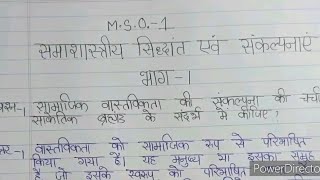 M.S.O.-1
समाशास्त्रीय सिद्धांत एवं संकल्पनाएं
भाग-1
सामाजिक वास्तविकता की संकल्पना की चर्चा
सांकेतिक के संदर्भ में कीजिए?
वास्तविकता को सामाजिक रूप से परिभाषित
किया गया है। यह मनुष्य या इसका समूह
है जो इसके स्वरूप को परिभाषित
PowerDirector